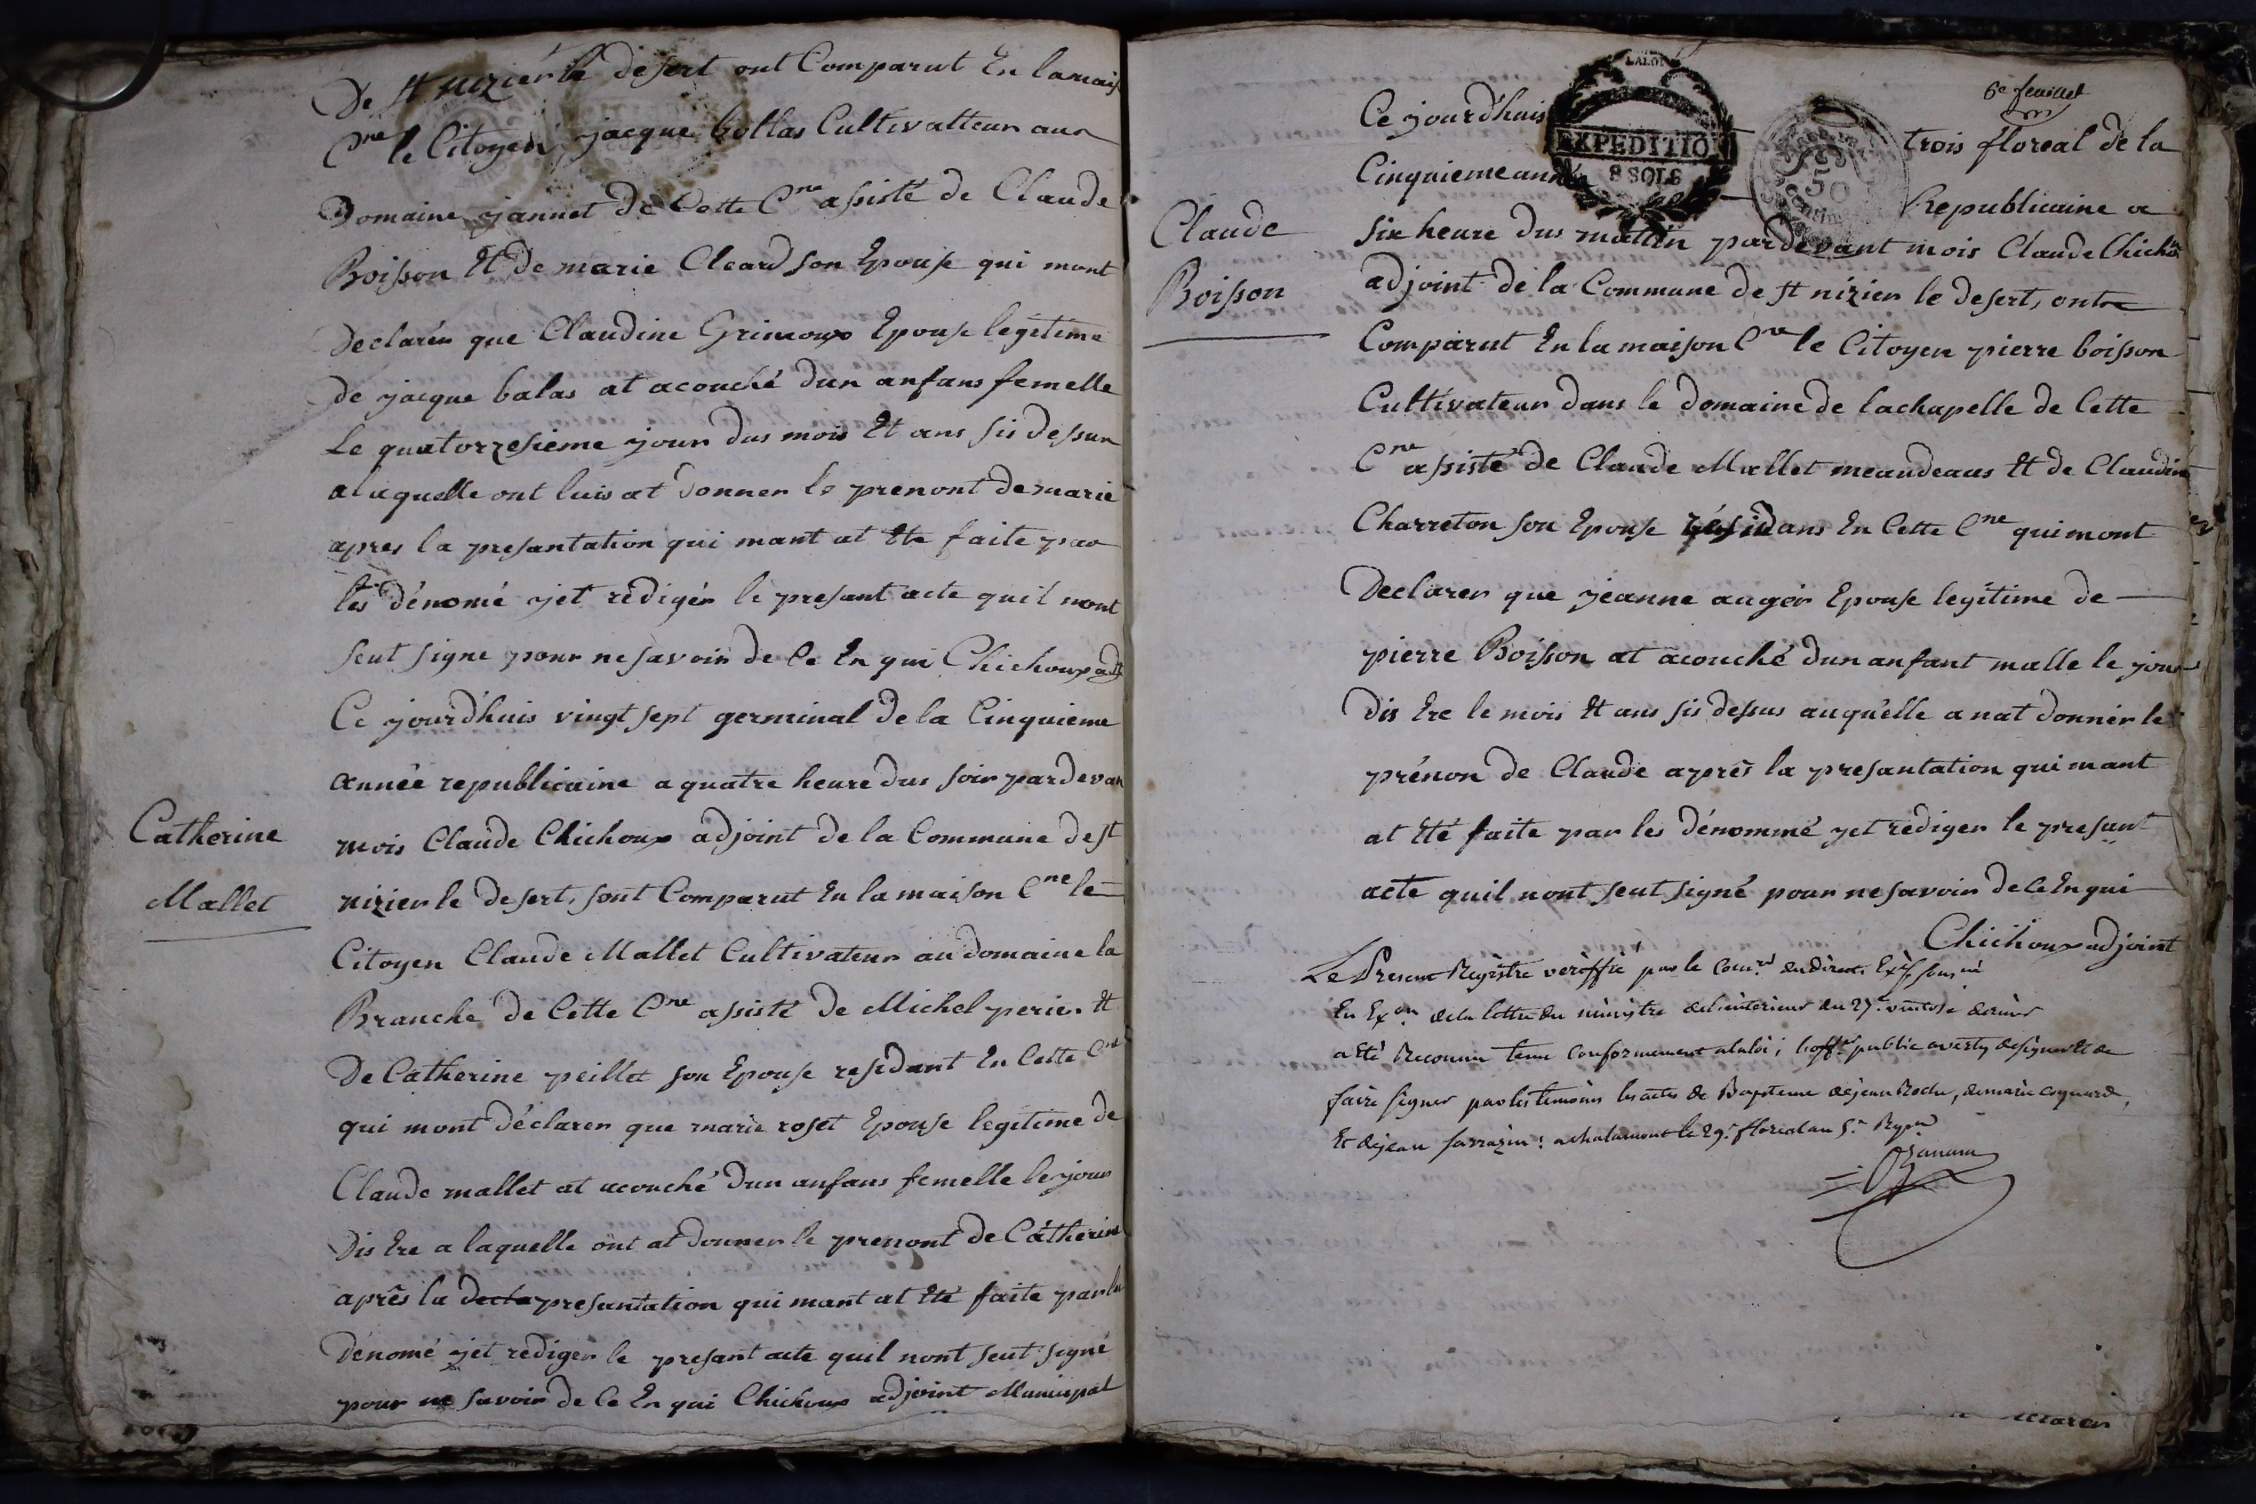 De St nizier le desert ont Comparut En lamais
Cne le Citoyen jacque bollas Cultivatteur aux
Domaine jannet de Cette Cne assisté de Claude
Boisson Et de marie Cleard son Epouse qui mont
Declarér que Claudine Grimoux Epouse legitime
de jacque balas at acouché dun anfans femelle
Le quatorzesieme jour dus mois Et ans sis dessur
a laquelle ont luis at donner le prenont de marie
apres la presantation qui mant at Ete faite par
les dénomé jet rédigér le presant acte quil nont
seut signe pour ne savoir de Ce En qui Chichoux adt
Ce jourdhuis vingt sept germinal de la Cinquieme
année republicaine a quatre heure dus soir pardevan
Catherine
Mallet
mois Claude Chichoux adjoint de la Commune de St
nizier le desert, sont Comparut En la maison Cne le
Citoyen Claude Mallet Cultivateur au domaine la
Branche de Cette Cne assisté de Michel perier Et
De Catherine peillet son Epouse residant En Cette Cne
qui mont déclarer que marie roset Epouse legitime de
Claude mallet at acouché dun anfans femelle le jour
Dis Ere a laquelle ont at donner le prenont de Catherine
aprês la decla presantation qui mant at Eté faite par les
Dénomé jet rediger le presant acte quil nont seut signé
pour ne savoir de Ce En qui Chichoux adjoint Municipal
6e feuillet
LA LOI
EXPEDITION
8 SOLS
50
Centim
Claude
Boisson
Ce jourdhuis trois floreal de la
Cinquieme anné Republicaine a
six heure dus mattin pardevant mois Claude Chichoux
adjoint de la Commune de St nizier le desert, ont
Comparut En la maison Cne le Citoyen pierre boisson
Cultivateur dans le domaine de lachapelle de Cette
Cne assisté de Claude Mallet meandeaus Et de Claudine
Charreton son Epouse résidans En Cette Cne qui mont
Declarer que jeanne auger Epouse legitime de
pierre Boisson at acouché dun anfant malle le jour
dis Ere le mois Et ans sis dessus auquelle a nat donnér le
prénon de Claude aprês la presantation qui mant
at Eté faite par les dénommé jet rediger le presant
acte quil nont seut signé pour ne savoir de Ce En qui
Chichoux adjoint
Le Present Registre veriffié par le Comre du direct. Exéf sousné
En Exon de la lettre du ministre de l'interieur du 27e ventose dernier
a été Reconnu tenu conformement alaloi; l'offer public averty de signer Et de
faire signer par les temoins les actes de Bapteme de jean Roche, de marie coguard,
Et de jean sarrazin: a chalamont le 29e floreal an 5e Repn